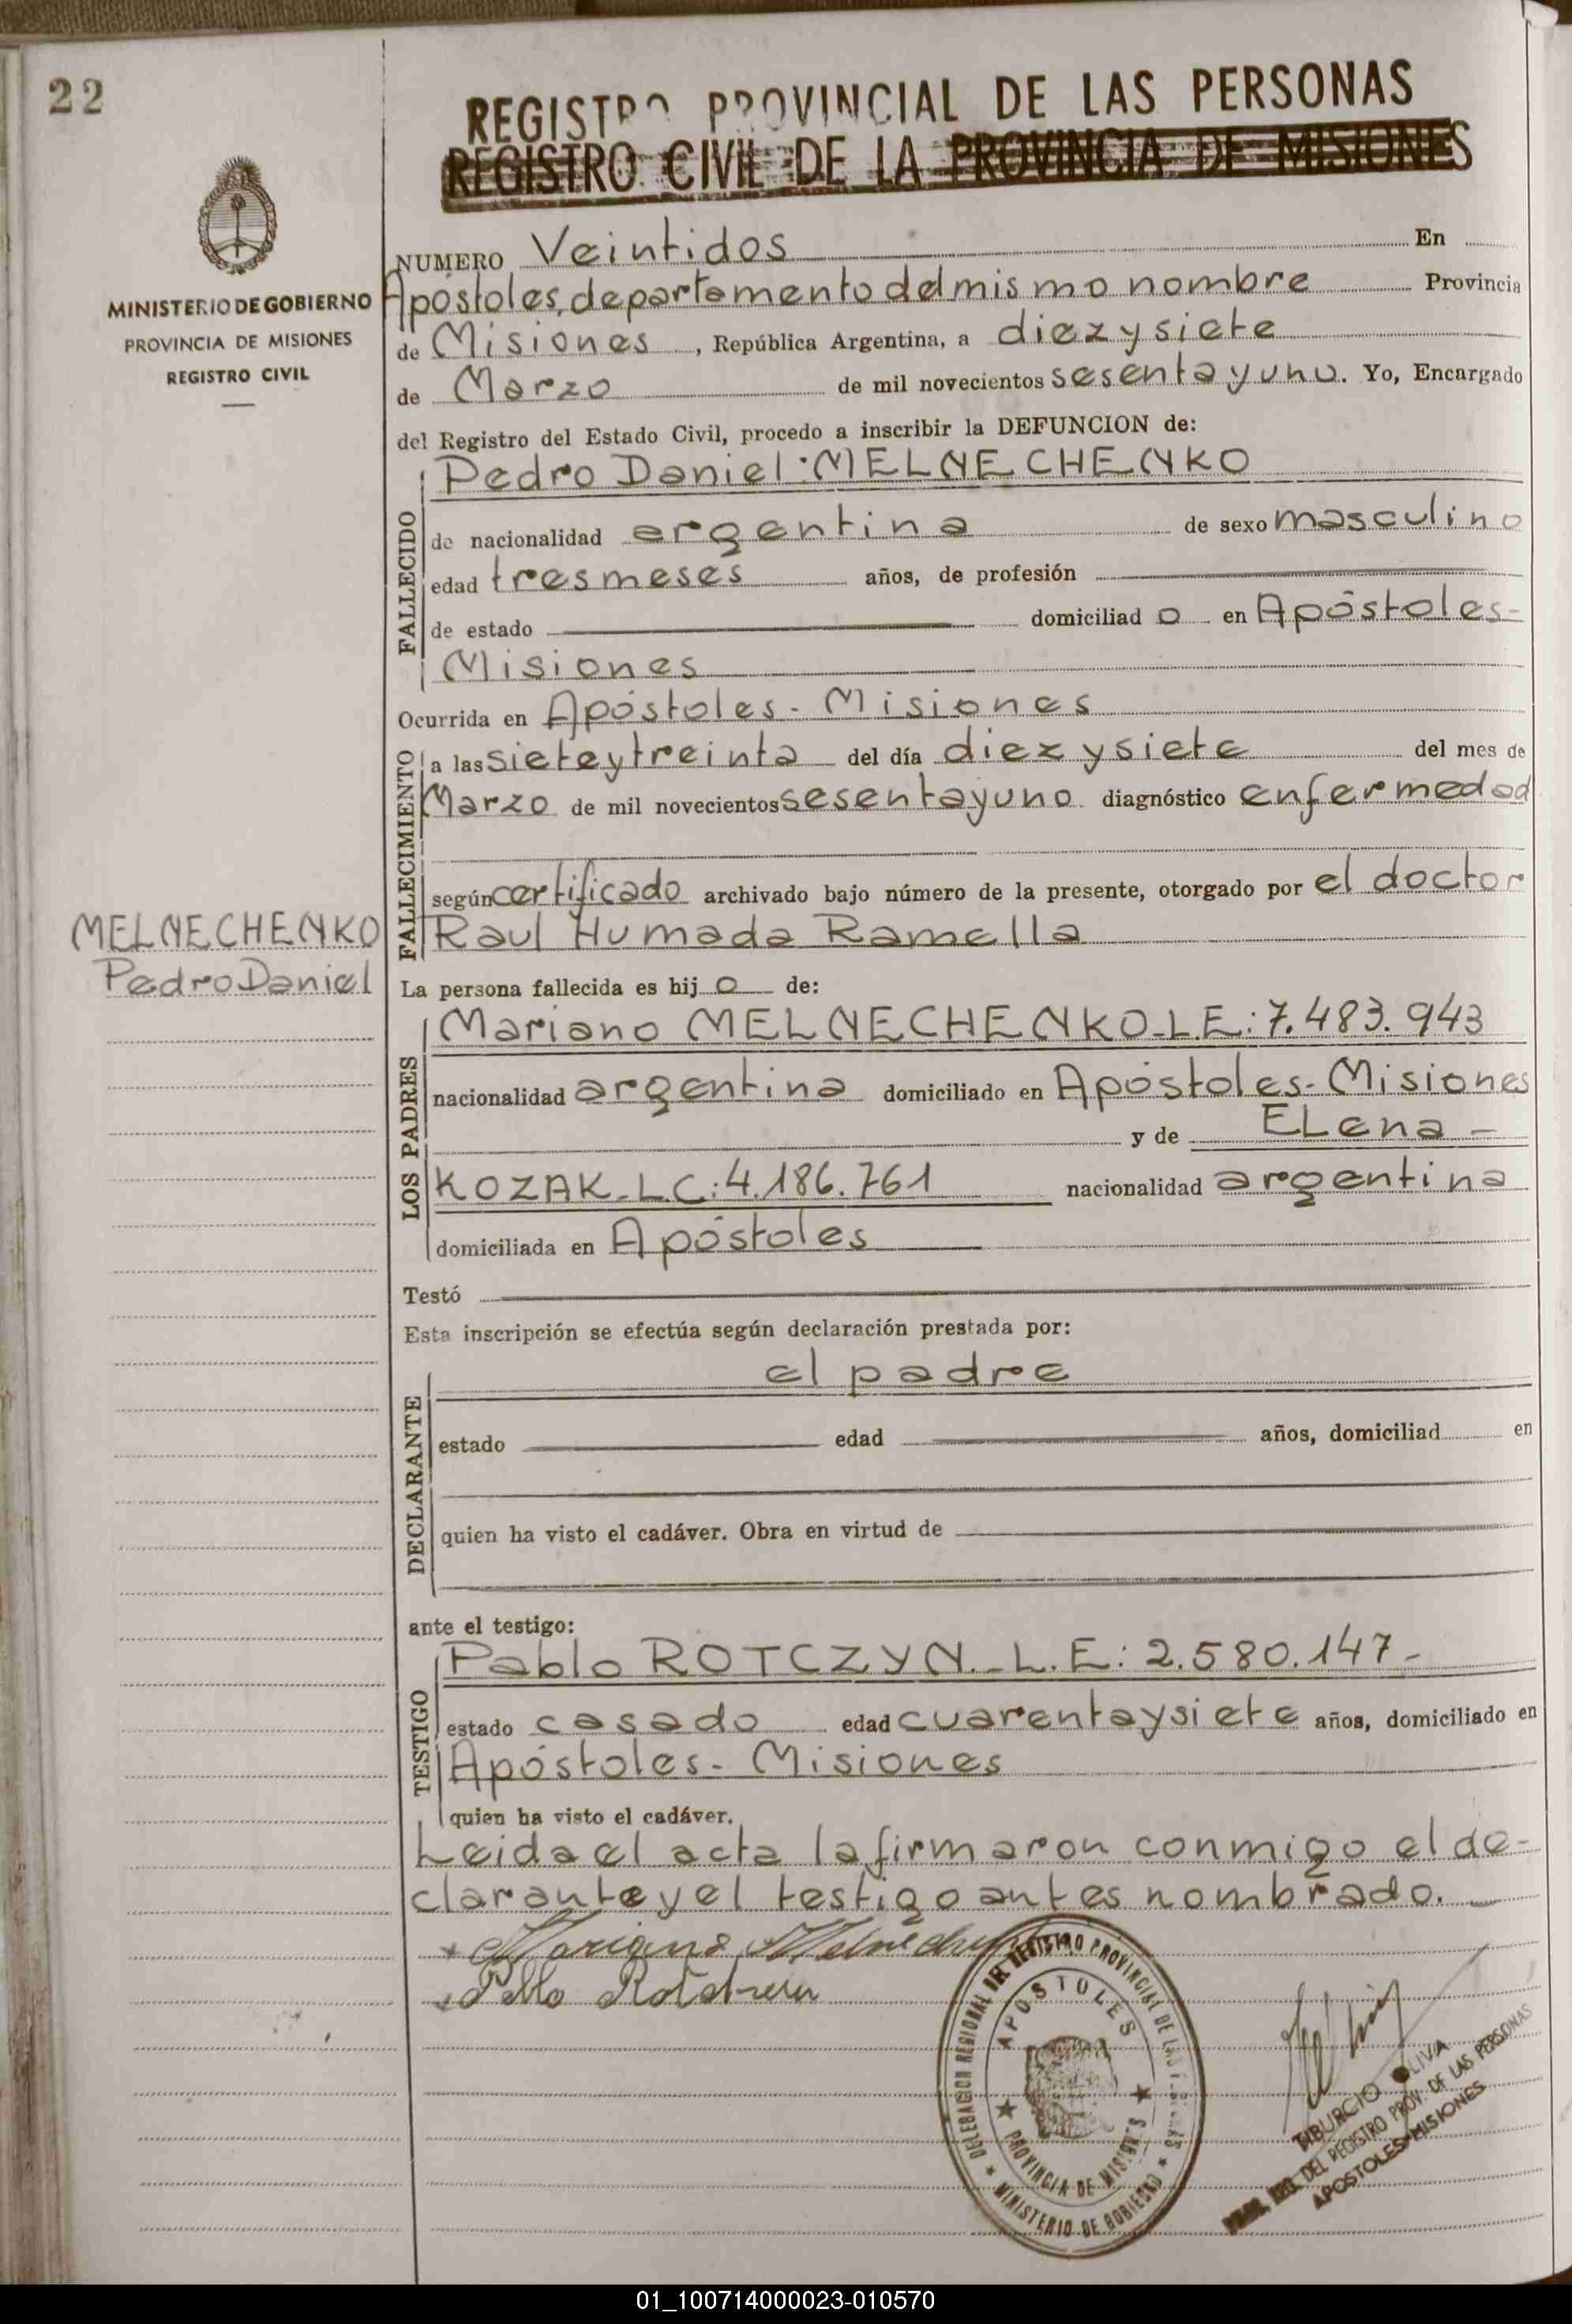 22
REGISTRO PROVINCIAL DE LAS PERSONAS
REGISTRO CIVIL DE LA PROVINCIA DE MISIONES
MINISTERIO DE GOBIERNO
PROVINCIA DE MISIONES
REGISTRO CIVIL
NUMERO Veintidos En
Apóstoles, departamento del mismo nombre Provincia
de Misiones, República Argentina, a diez y siete
de Marzo de mil novecientos sesenta y uno. Yo, Encargado
del Registro del Estado Civil, procedo a inscribir la DEFUNCION de:
FALLECIDO
Pedro Daniel MELNECHENKO
de nacionalidad argentina de sexo masculino
edad tres meses años, de profesión
de estado domiciliad o en Apóstoles-
Misiones
Ocurrida en Apóstoles - Misiones
FALLECIMIENTO
a las siete y treinta del día diez y siete del mes de
Marzo de mil novecientos sesenta y uno diagnóstico enfermedad
según certificado archivado bajo número de la presente, otorgado por el doctor
Raul Humada Ramella
MELNECHENKO
Pedro Daniel
La persona fallecida es hij o de:
LOS PADRES
Mariano MELNECHENKO-L.E: 7.483.943
nacionalidad argentina domiciliado en Apóstoles- Misiones
y de ELena -
KOZAK-L.C: 4.186.761 nacionalidad argentina
domiciliada en Apóstoles
Testó
Esta inscripción se efectúa según declaración prestada por:
DECLARANTE
el padre
estado edad años, domiciliad en
quien ha visto el cadáver. Obra en virtud de
ante el testigo:
TESTIGO
Pablo ROTCZYN.-L.E: 2.580.147-
estado casado edad cuarenta y siete años, domiciliado en
Apóstoles- Misiones
quien ha visto el cadáver.
Leida el acta la firmaron conmigo el de-
clarante y el testigo antes nombrado.
Mariano
Pablo
DELEGACION REGIONAL DEL REGISTRO PROVINCIAL DE LAS PERSONAS
APOSTOLES
PROVINCIA DE MISIONES
MINISTERIO DE GOBIERNO
TIBURCIO OLIVA
DEL REGISTRO PROV. DE LAS PERSONAS
APOSTOLES-MISIONES
01_100714000023-010570